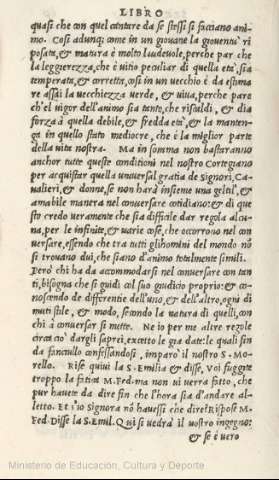 LIBRO
quasi che con quel cantare da se stessi si facciano ani-
mo. Cosi adunq; come in un giovane la gioventu' ri
posata, & matura è molto laudevole, perche par che
la leggierezza, che è vitio peculiar di quella eta', sia
temperata, & corretta, cosi in un vecchio è da estima
re assai la vecchiezza verde, & viva, perche pare
ch'el vigor dell'animo sia tanto, che riscaldi, & dia
forza à quella debile, & fredda eta', & la manten-
ga in quello stato mediocre, che è la miglior parte
della vita nostra. Ma in somma non bastaranno
anchor tutte queste conditioni nel nostro Cortegiano
per acquistar quella universal gratia de Signori, Ca-
valieri, & donne, se non harà insieme una gentil', &
amabile manera nel conversare cotidiano: & di que
sto credo veramente che sia difficile dar regola alcu
na, per le infinite, & varie cose, che occorrono nel con
versare, essendo che tra tutti gli homini del mondo nō
si trovano dui, che siano d'animo totalmente simili.
Però chi ha da accommodarsi nel conversare con tan
ti, bisogna che si guidi col suo giudicio proprio: & co
noscendo de differentie dell'uno, & dell'altro, ogni dì
muti stile, & modo, secondo la natura di quelli, con
chi à conversar si mette. Ne io per me altre regole
circa ciò dargli saprei, eccetto le gia date: le quali sin
da fanciullo confessandosi, imparò il nostro S. Mo-
rello. Rise quivi la S. Emilia & disse, Voi fuggite
troppo la fatica M. Fed. ma non vi verra fatto, che
pur havete da dire fin che l'hora sia d'andare al-
letto. Et s'io Signora nō havessi che dire? Rispose M.
Fed. Disse la S. Emil. Qui si vedrà il vostro ingegno:
& se è vero
Ministerio de Educación, Cultura y Deporte